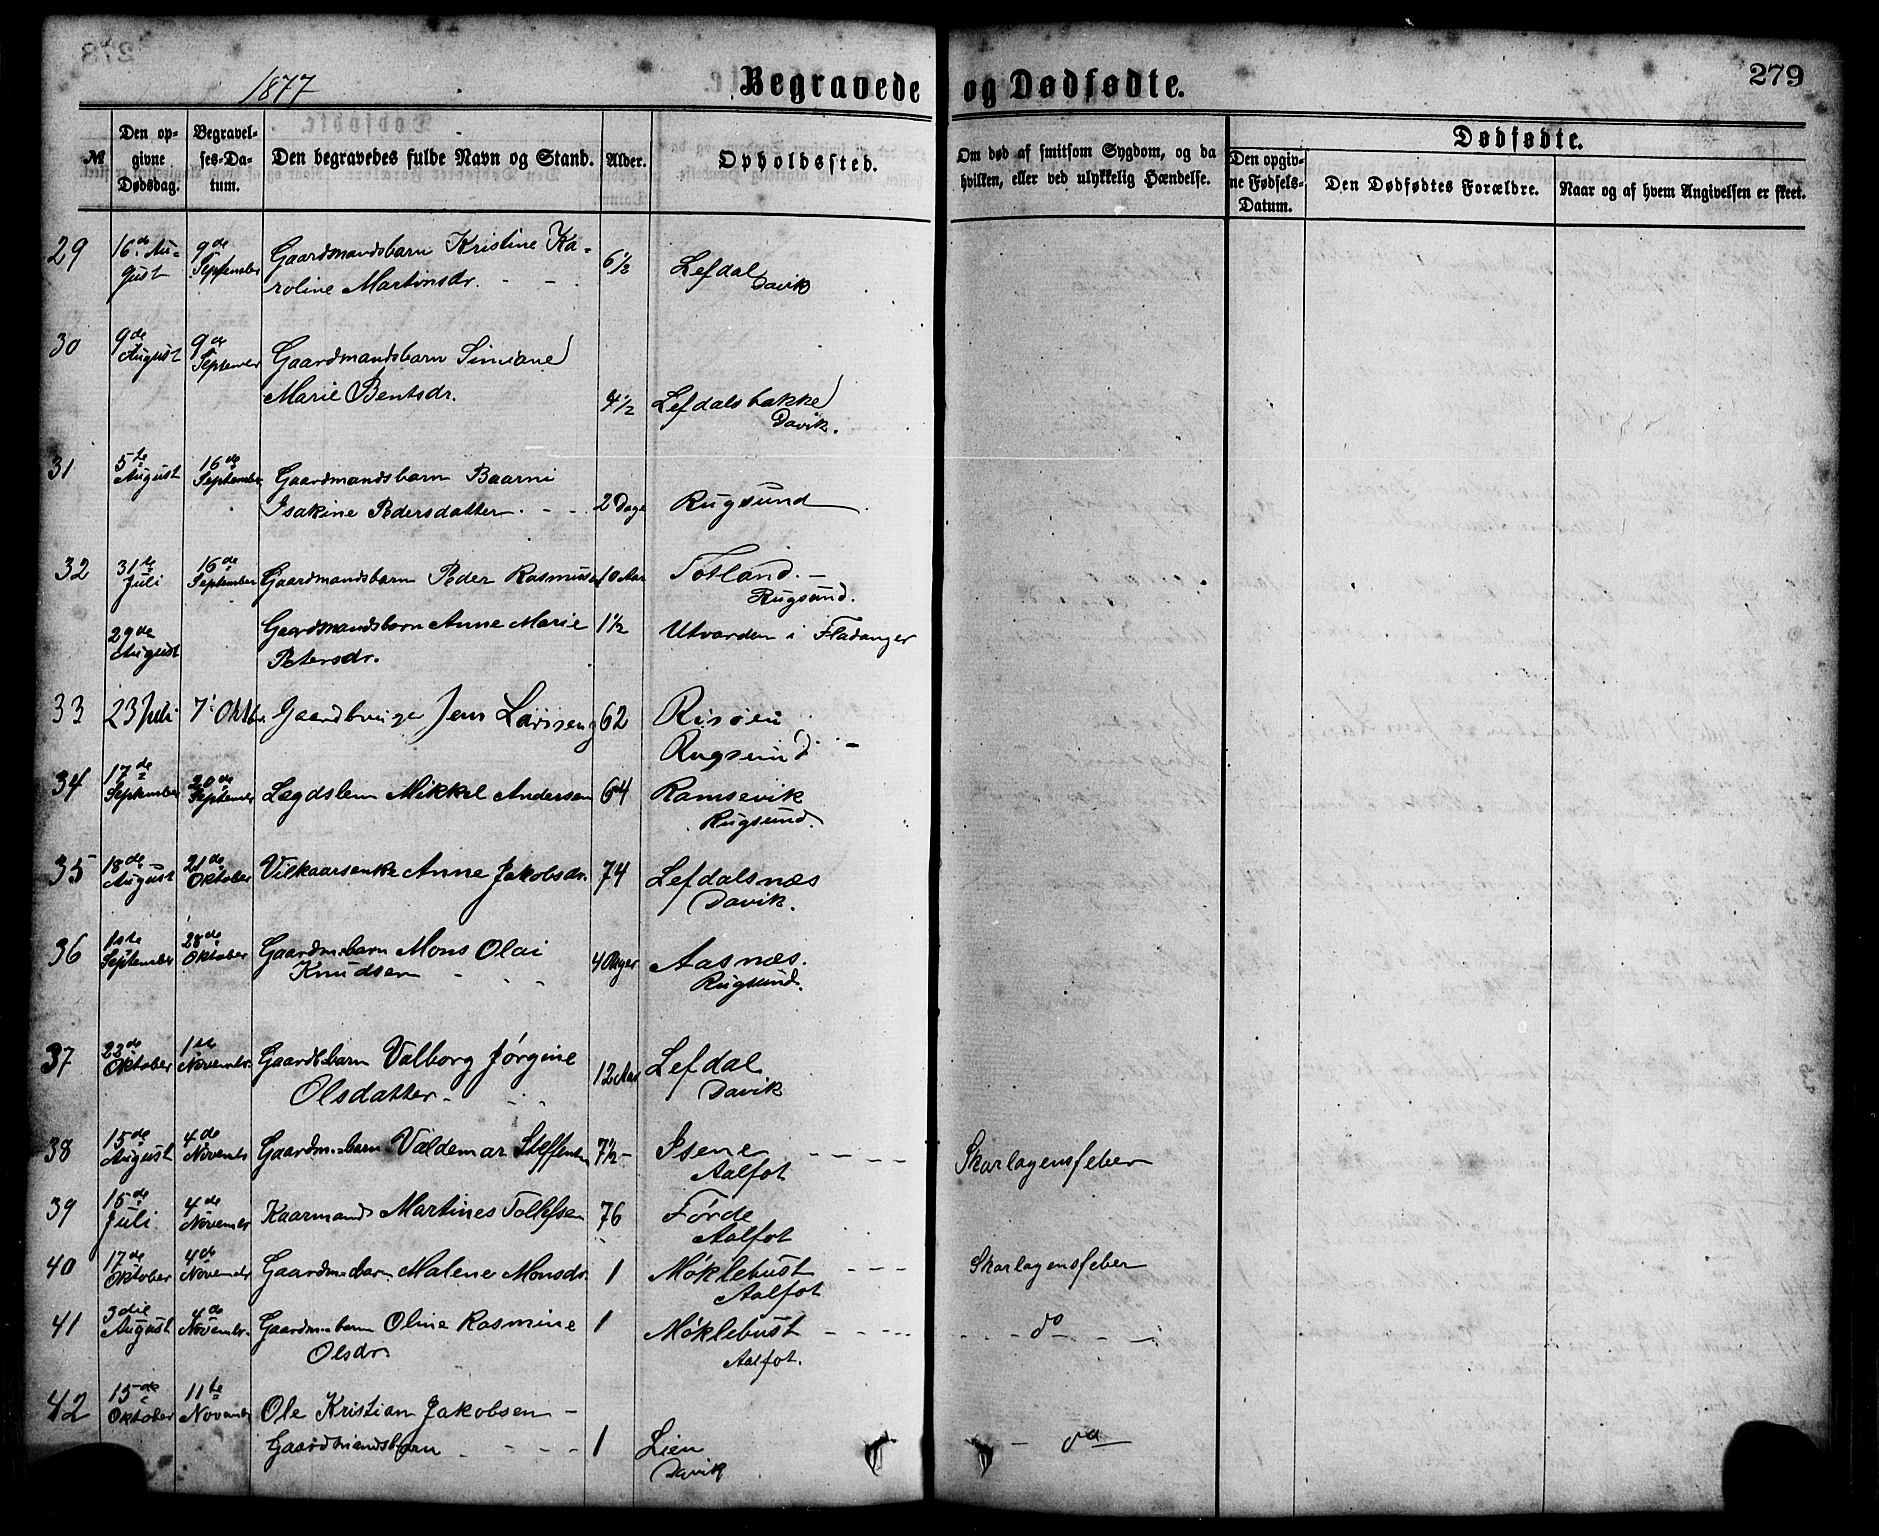 1877
Begravede og Dødfødte.
279
№
Den opgivne Dødsdag.
Begravelses-Datum.
Den begravedes fulde Navn og Stand.
Alder.
Opholdssted.
Om død af smitsom Sygdom, og da hvilken, eller ved ulykkelig Hændelse.
Dødfødte.
Den opgivne Fødsels-Datum.
Den Dødfødtes Forældre.
Naar og af hvem Angivelsen er skeet.
29 16de August 9de September Gaardmandsbarn Kristine Karoline Martinsdr. 6 1/2 Lefdal Davik
30 9de August 9de September Gaardmandsbarn Simiane Marie Bentsdr. 4 1/2 Lefdalsbakke Davik.
31 5te August 16de September Gaardmandsbarn Baarni Isakine Pedersdatter. 2 Dage Rugsund
32 31te Juli 16de September Gaardmandsbarn Peder Rasmussen 10 Aar Totland. Rugsund.
29de August Gaardmandsbarn Anne Marie Petersdr. 1 1/2 Utvorden i Fladanger
33 23 Juli 7 Oktbr. Gaardbruger Jens Larsen 62 Risøen Rugsund.
34 17de September 20de September Lægdslem Mikkel Andersen 64 Ramsevik Rugsund.
35 18de August 21de Oktober Vilkaarsenke Anne Jakobsdr. 74 Lefdalsnæs Davik.
36 1ste September 28de Oktober Gaardm.barn Mons Olai Knudsen 4 Uger Aasnæs. Rugsund.
37 22de Oktober 1ste Novembr. Gaardsbarn Valborg Jørgine Olsdatter 12 Aar Lefdal Davik
38 15de August 4de Novembr Gaardm.barn Valdemar Steffensen 7 1/2 Isene Aalfot Skarlagensfeber
39 15de Juli 4de Novembr Kaarmand Martines Tollefsen 76 Førde Aalfot
40 17de Oktober 4de Novembr Gaardm.barn Malene Monsdr. 1 Møklebust Aalfot Skarlagensfeber
41 3die August 4de Novembr. Gaardm.barn Oline Rasmine Olsdr. 1 Møklebust Aalfot. do
42 15de Oktober 11te Novembr Ole Kristian Jakobsen Gaardmandsbarn 1 Lien Davik do